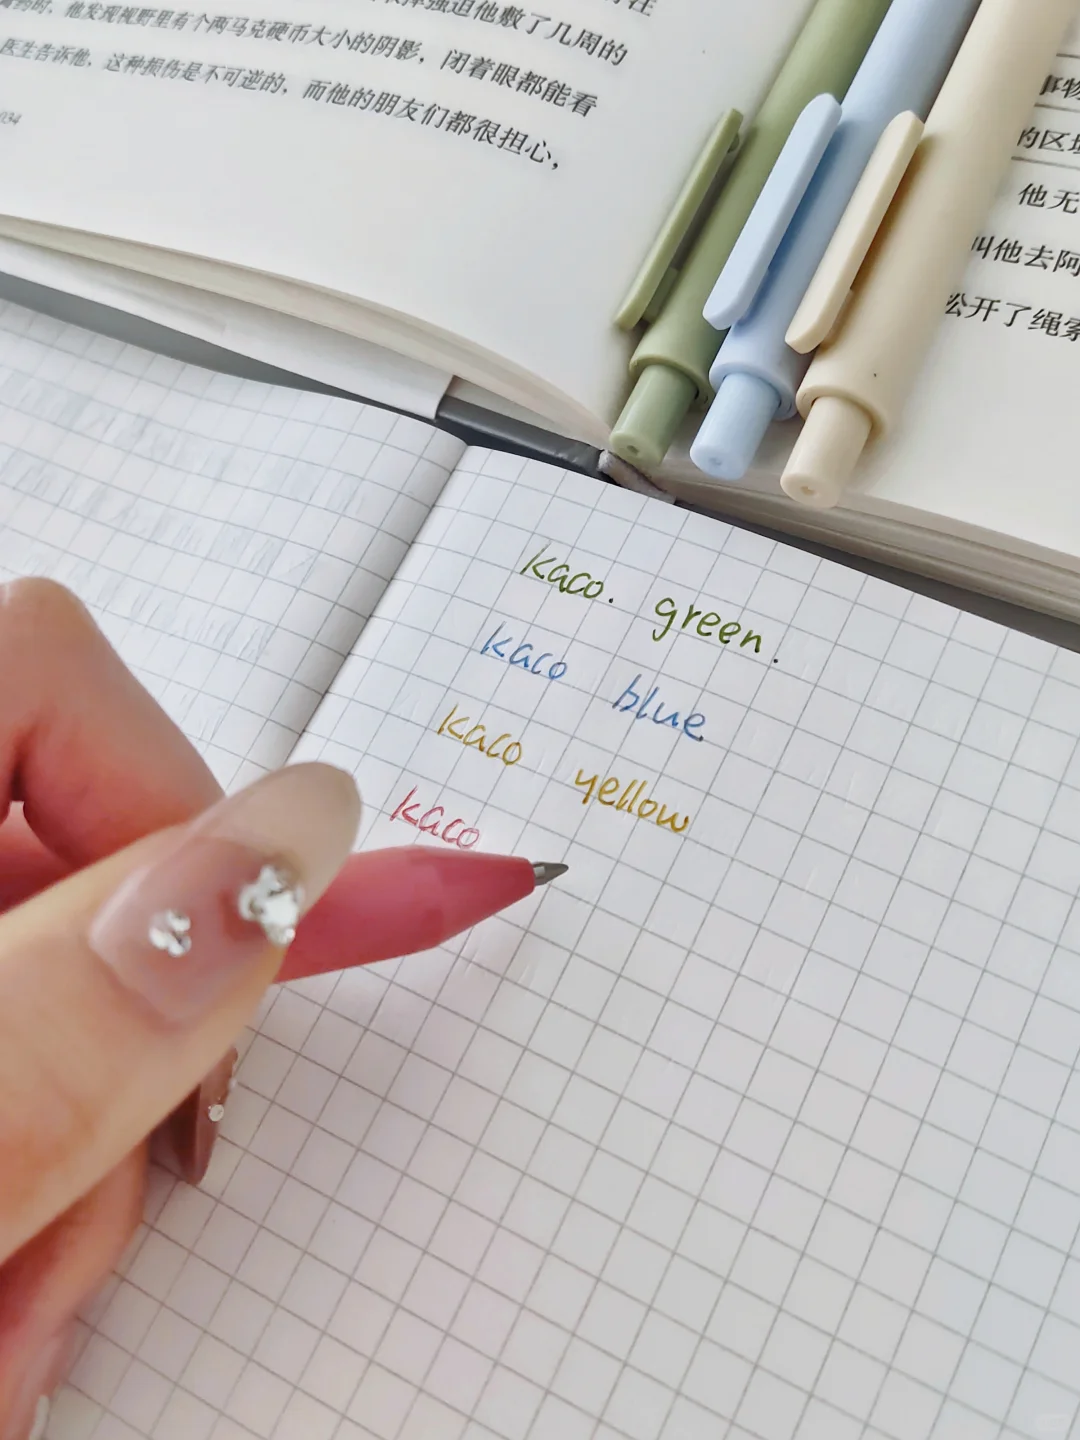 敷了几周的
膏药时，他发现视野里有个两马克硬币大小的阴影，闭着眼都能看
医生告诉他，这种损伤是不可逆的，而他的朋友们都很担心，
034
事物
的区域
他无
叫他去阿
松开了绳索
kaco. green.
kaco blue
kaco yellow
kaco